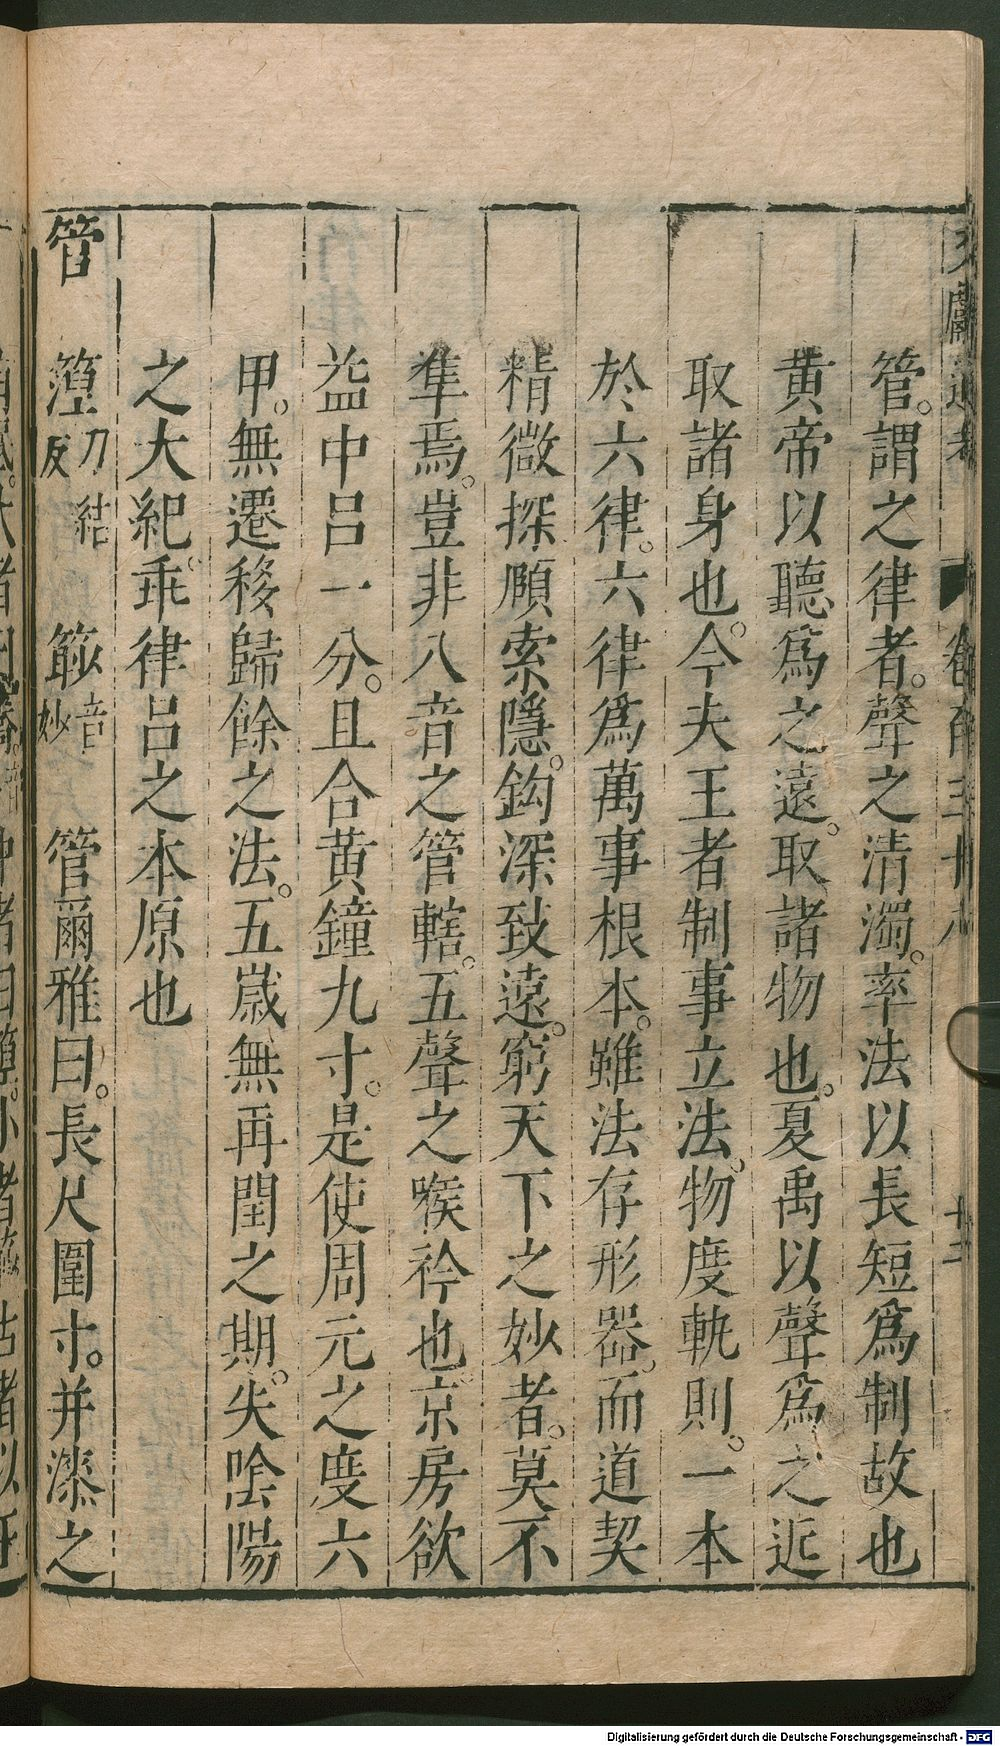 管。謂之律者。聲之清濁。率法以長短爲制故也
黄帝以聽爲之遠。取諸物也。夏禹以聲爲之近
取諸身也。今夫王者制事立法。物度軌則。一本
於六律。六律爲萬事根本。雖法存形器。而道契
精微探賾索隱。鈎深致遠。窮天下之妙者。莫不
凖焉。豈非八音之管轄。五聲之喉衿也。京房欲
益中呂一分。且合黄鐘九寸。是使周元之度六
甲。無遷移歸餘之法。五嵗無再閏之期。失陰陽
之大紀。乖律呂之本原也
管 篞刀結反 篎音妙 管爾雅曰。長尺圍寸。并漆之
Digitalisierung gefördert durch die Deutsche Forschungsgemeinschaft - DFG